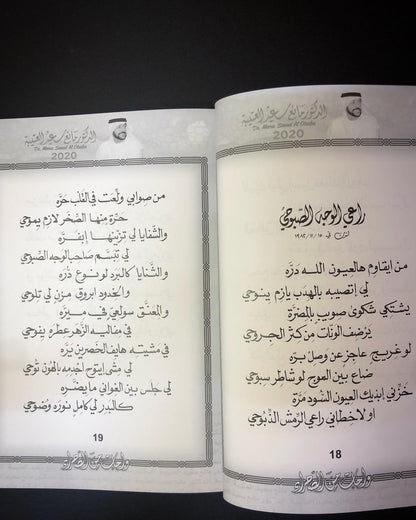 الدكتور مانع سعيد العتيبة
Dr. Mana Saeed Al Otaiba
2020
راعي الوجه الصبوحي
من إيقاوم هالعيون الله درّه
لي إتصيبه بالهدب يازم ينوحي
يشتكي شكوى صويب بالمضرّة
يزضف الونّات من كثر الجروحي
لو غريج عاجز عن وصل برّه
ضاع بين الموج لو شاطر سبوحي
خزّني إبذيك العيون السود مرّة
او لا خطاني راعي الرمش الذبوحي
18
واحات من الصحراء
الدكتور مانع سعيد العتيبة
Dr. Mana Saeed Al Otaiba
2020
من صوابي ولّعت في القلب حرّه
حرّة منها الصخر لازم يموحي
والثنايا لي تزينها إبغرّه
لي تبسّم صاحب الوجه الصبوحي
والثنايا كالبرد لو نوع درّه
والخدود ابروق مزن لي تلوحي
والمعنّق سولعي في ميزه
في مثاليه الزهر عطره يفوحي
في مشيته هايف الخصرين يزه
لي مشى إيتوج اخدمه بالهون توحي
لي جلس بين الغواني ما يضرّه
كالبدر لي كامل نوره وضوحي
19
واحات من الصحراء